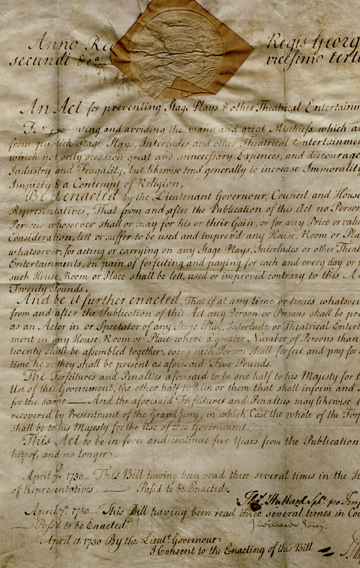 Anno Re Regis Georg
secundi &c. vicesimo terti
An Act for preventing Stage Plays & other Theatrical Entertainm
For preventing and avoiding the many and great Mischiefs which ar
from publick Stage Plays, Interludes and other Theatrical Entertainmen
which not only occasion great and unnecessary Expences, and discourage
Industry and Frugality, but likewise tend generally to increase Immorali
Impiety & a Contempt of Religion,
Be it enacted by the Lieutenant Governour, Council and House
Representatives, That from and after the Publication of this Act no Person
Persons whosoever shall or may for his or their Gain, or for any Price or valu
Consideration, lett or suffer to be used and improv'd any House, Room or Pla
whatsoever for acting or carrying on any Stage Plays, Interludes or other Theat
Entertainments, on pain of forfeiting and paying for each and every day or
such House, Room or Place shall be lett, used or improved contrary to this A
Twenty Pounds.
And be it further enacted, That if at any time or times whatsoev
from and after the Publication of this Act any Person or Persons shall be pre
as an Actor in or Spectator of any Stage Play, Interlude or Theatrical Enter
ment in any House, Room or Place where a greater Number of Persons than
twenty shall be assembled together, every such Person shall forfeit and pay for
time he or they shall be present as aforesaid Five Pounds.
The Forfeitures and Penalties aforesaid to be one half to his Majesty for t
Use of this Government, the other half to him or them that shall inform and
for the same And the aforesaid Forfeitures and Penalties may likewise
recovered by Presentment of the Grand Jury, in which Case the whole of the Forf
shall be to his Majesty for the Use of this Government.
This Act to be in force and continue five Years from the Publication
hereof, and no longer.
April 1750 This Bill having been read three several times in the H
of Representatives Pass'd to be Enacted
Thos Hubbard
April 7th 1750 This Bill having been read three several times in Co
Pass'd to be Enacted
April 1750 By the Lieut. Governour
I Consent to the Enacting of this Bill